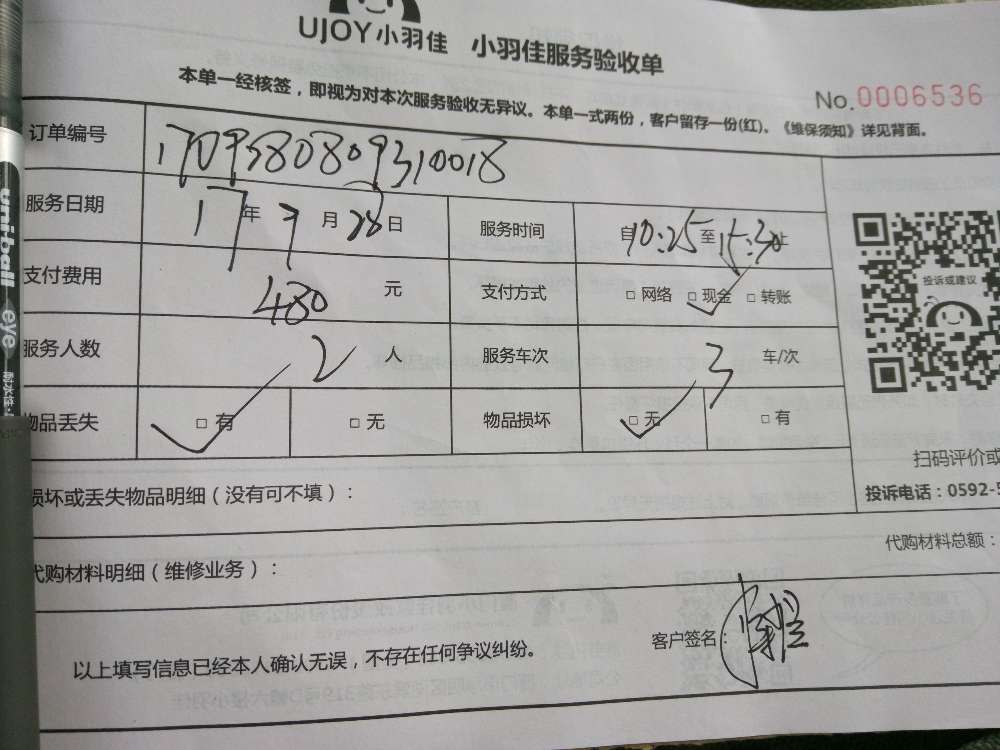 UJOY小羽佳 小羽佳服务验收单
No.0006536
本单一经核签，即视为对本次服务验收无异议。本单一式两份，客户留存一份(红)。《维保须知》详见背面。
订单编号 1709380809310018
服务日期 17年9月28日 服务时间 自10:25至15:30止
支付费用 480 元 支付方式 □ 网络 □ 现金 □ 转账
服务人数 2 人 服务车次 3 车/次
物品丢失 □ 有 □ 无 物品损坏 □ 无 □ 有
投诉或建议
扫码评价或
投诉电话：0592-5
损坏或丢失物品明细（没有可不填）：
代购材料明细（维修业务）：
代购材料总额：
以上填写信息已经本人确认无误，不存在任何争议纠纷。
客户签名：
uni-ball eye
耐水性